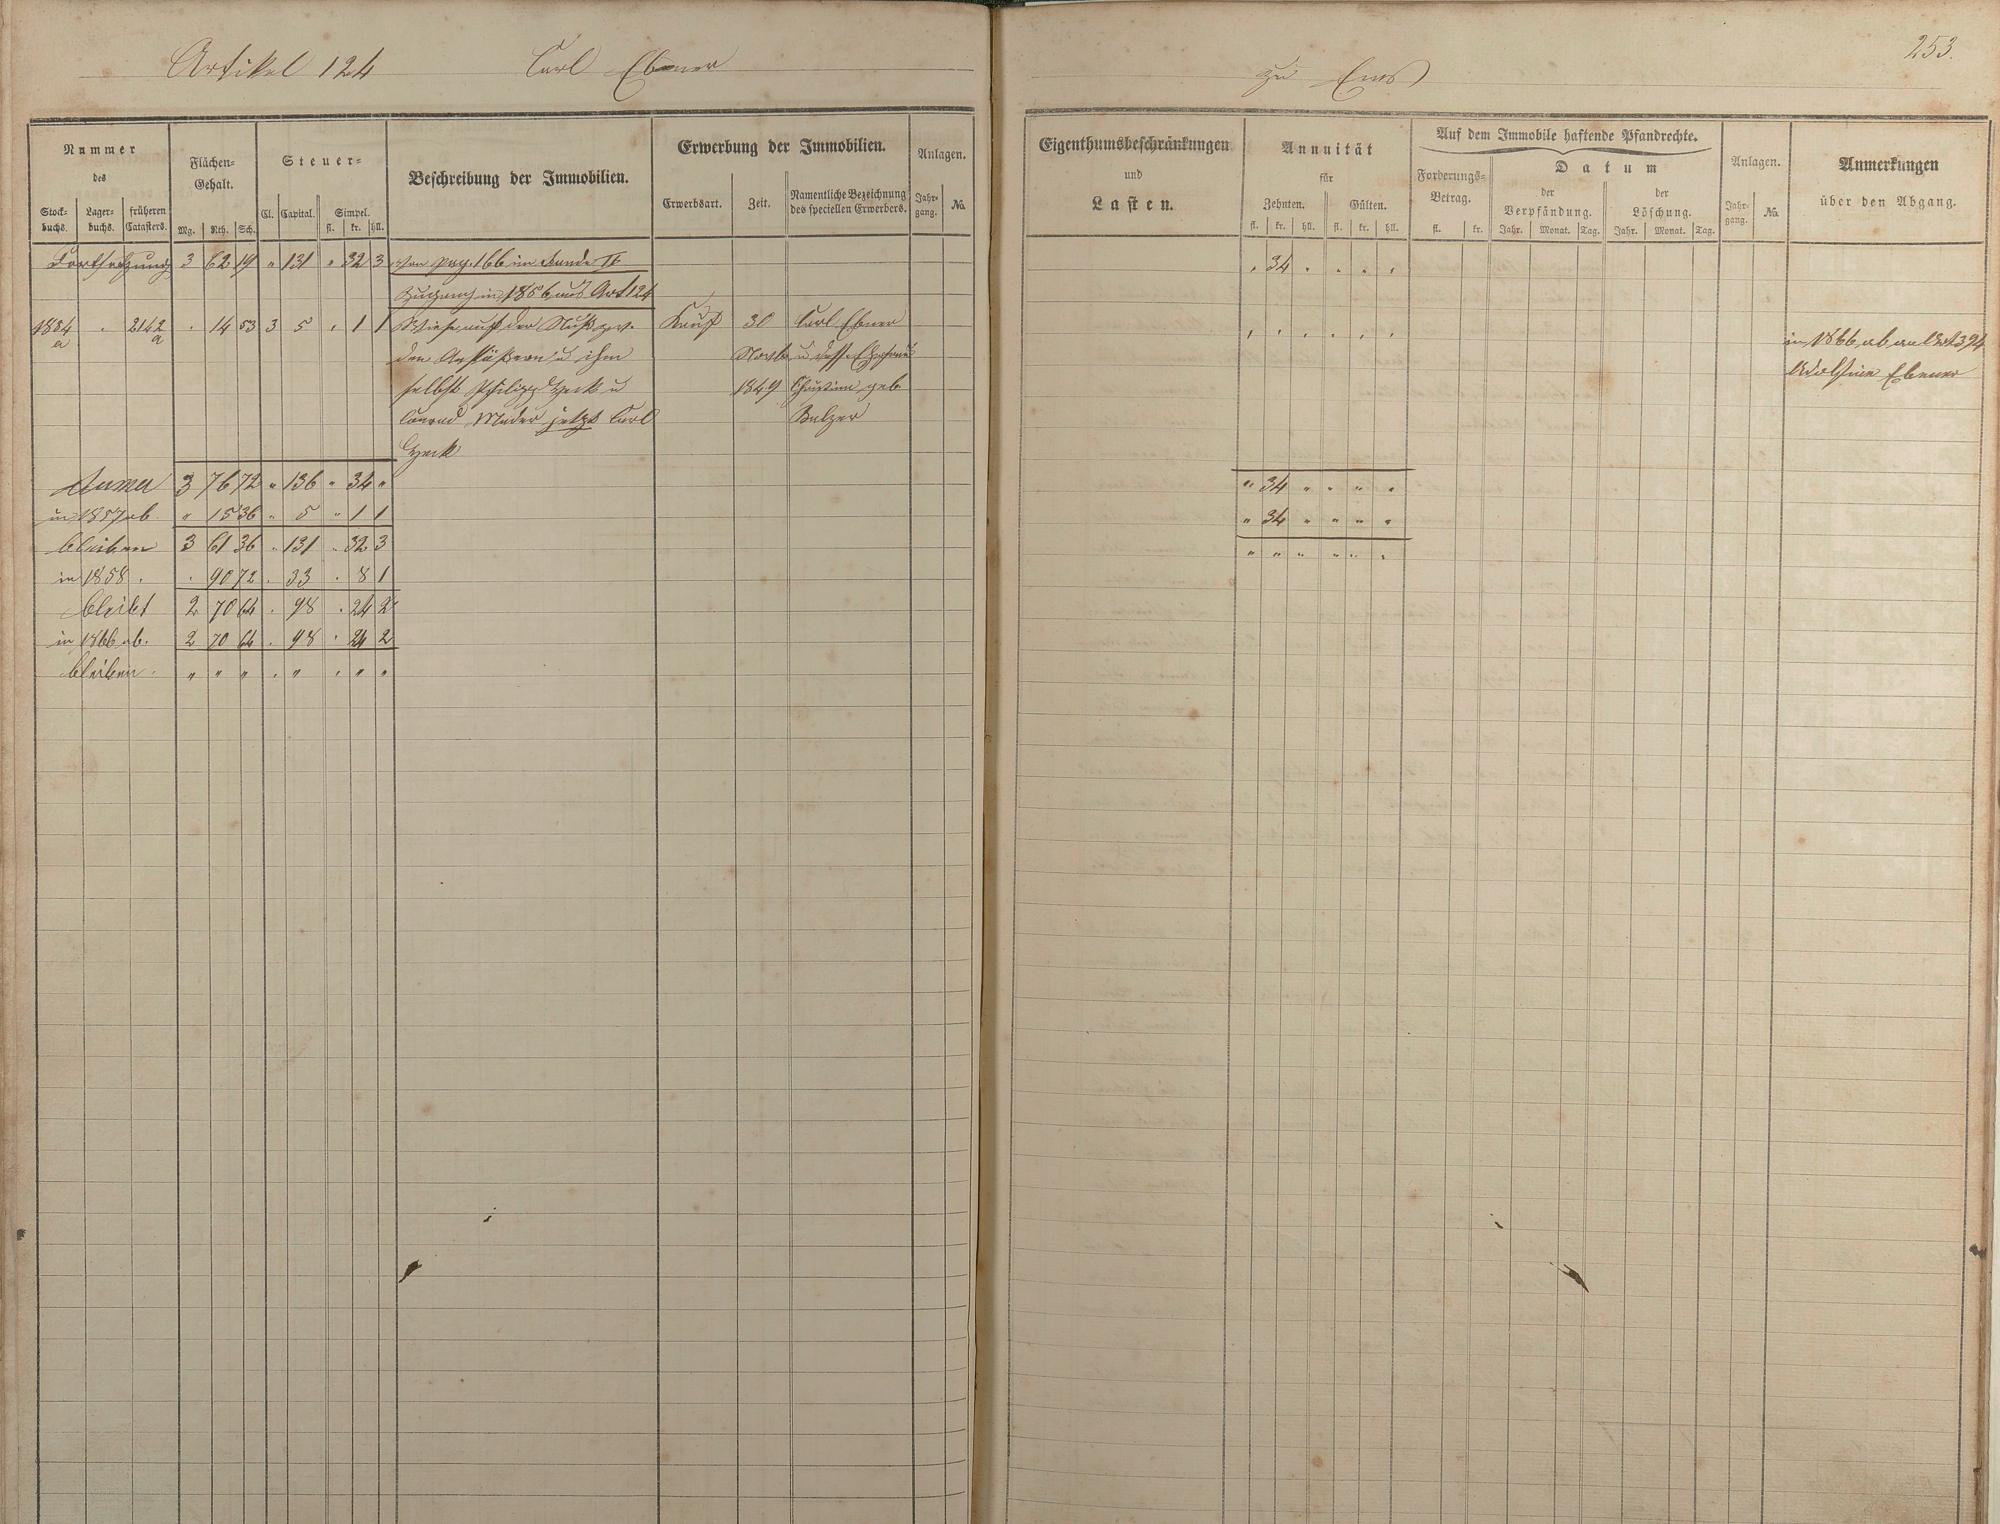 Artikel 124 Carl Ebener
zu Ems 253.
Nummer
des
Stock-
buchs.
Lager-
buchs.
früheren
Catasters.
Flächen-
Gehalt.
Mg. Rth. Sch.
Steuer-
Cl. Capital. Simpel.
fl. kr. hll.
Beschreibung der Immobilien.
Erwerbung der Immobilien.
Erwerbsart. Zeit. Namentliche Bezeichnung
des speciellen Erwerbers.
Anlagen.
Jahr-
gang. No.
Eigenthumsbeschränkungen
und
Lasten.
Annuität
für
Zehnten. Gülten.
fl. kr. hll. fl. kr. hll.
Auf dem Immobile haftende Pfandrechte.
Forderungs-
Betrag.
fl. kr.
Datum
der
Verpfändung.
Jahr. Monat. Tag.
der
Löschung.
Jahr. Monat. Tag.
Anlagen.
Jahr-
gang. No.
Anmerkungen
über den Abgang.
Fortsetzung 3 62 19 " 131 " 32 3 von pag. 166 im Bande II " 34 " " " "
Zugang in 1856 aus Art 124
1884 a " 2142 a " 14 53 3 5 " 1 1 Wiese auf der
den Anstößern u ihm
selbst Philipp Heck u
Conrad jetzt Carl
Heck
Kauf
30
Novbr
1849
Carl Ebener
u dess. Ehefrau
Christine geb.
Balzer
in 1866 ab an Art 394
Ebener
Summa 3 76 72 " 136 " 34 " " 34 " " " "
in 1857 ab. " 15 36 " 5 " 1 1 " 34 " " " "
bleiben 3 61 36 " 131 " 32 3 " " " " " "
in 1858 . " 90 72 . 33 . 8 1
bleibt 2 70 64 . 98 . 24 2
in 1866 ab. 2 70 64 . 98 . 24 2
bleiben . " " " . " . " "